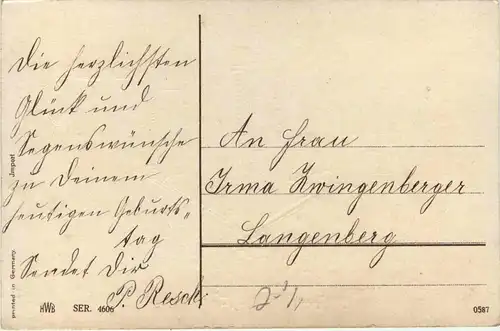 Die herzlichsten
Glück und
Segenswünsche
zu Deinem
heutigen Geburts-
tag
Sendet Dir
P. Resch
An Frau
Irma Zwingenberger
Langenberg
printed in Germany. Import
HWB SER. 4606
0587